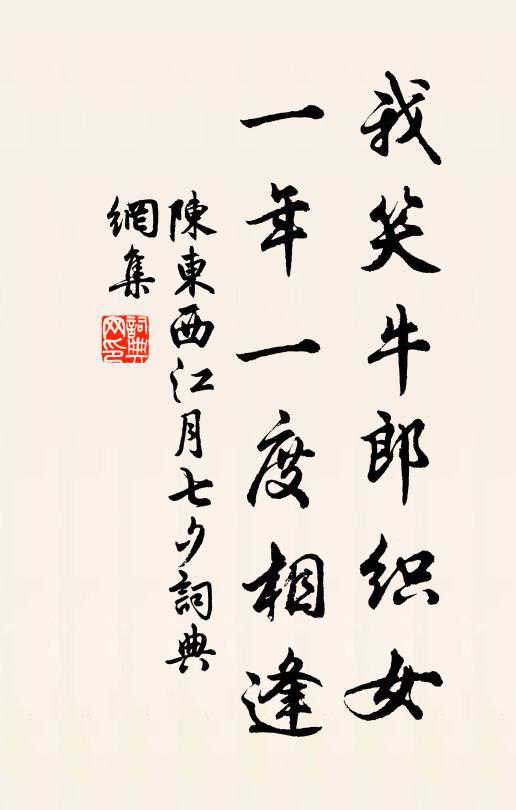 我笑牛郎织女
一年一度相逢
陳東西江月七夕詞典
網集
詞典网印